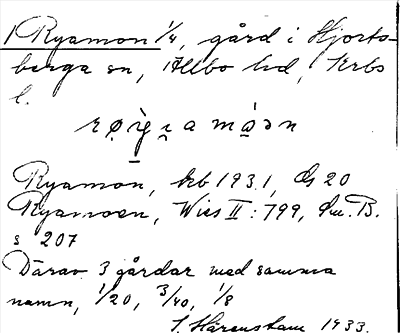 1 Ryamon 1/4, gård i Hjorts-
berga sn, Allbo hd, Krbs
l.
Ryamon, krb 1931, GS 20
Ryamoen, Wies II: 799, Sm. B.
s 207
Därav 3 gårdar med samma
namn, 1/20, 3/40, 1/8
J. Härenstam 1933.